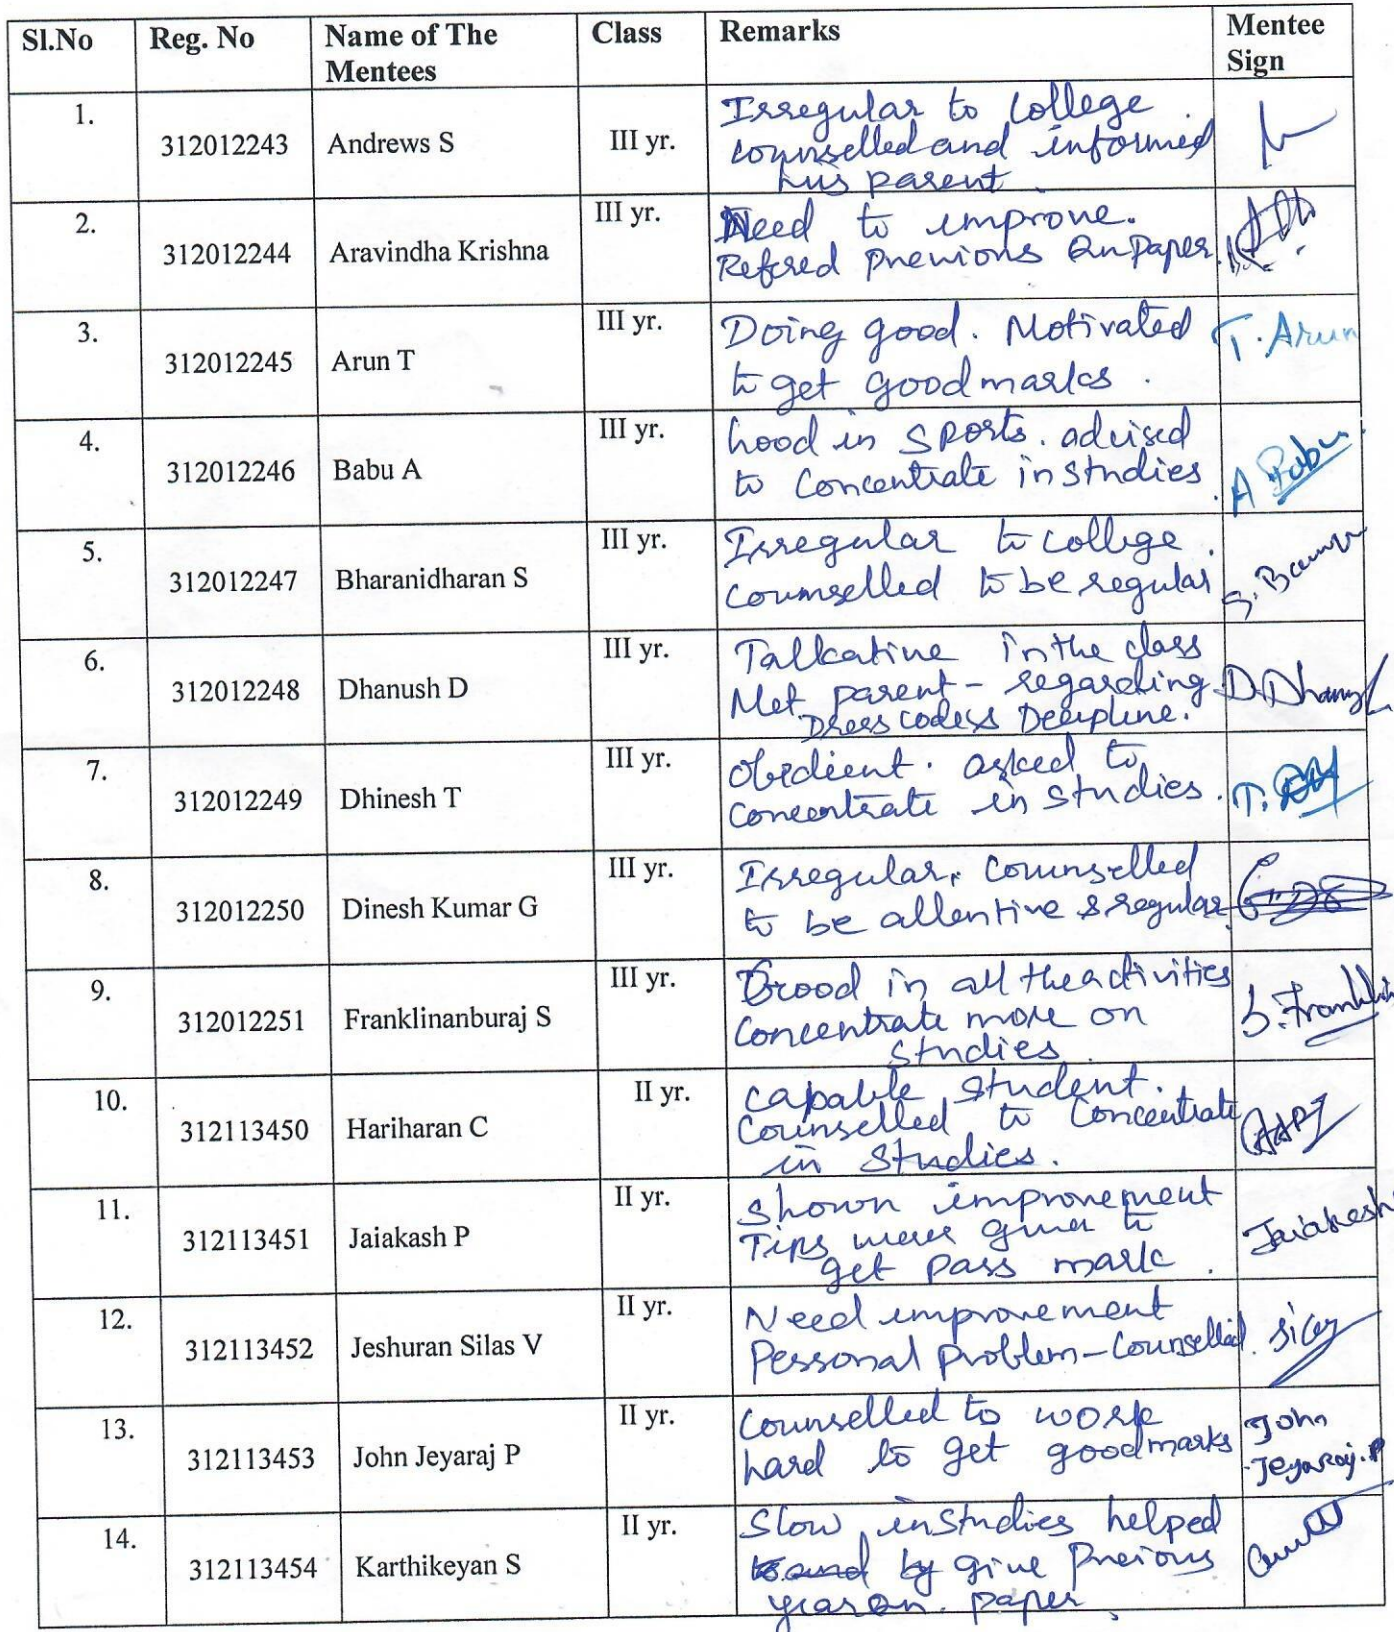 Sl.No Reg. No Name of The Mentees Class Remarks Mentee Sign
1. 312012243 Andrews S III yr. Irregular to College
counselled and informed
his parent.
2. 312012244 Aravindha Krishna III yr. Need to improve.
Refered Previous Qn Paper.
3. 312012245 Arun T III yr. Doing good. Motivated T. Arun
to get good marks.
4. 312012246 Babu A III yr. Good in sports. advised
to Concentrate in studies. A Babu
5. 312012247 Bharanidharan S III yr. Irregular to college.
Counselled to be regular S.
6. 312012248 Dhanush D III yr. Talkative in the class
Met parent - regarding D. Dhanush
Dress code & Decipline.
7. 312012249 Dhinesh T III yr. obedient. asked to
concentrate in studies. T.
8. 312012250 Dinesh Kumar G III yr. Irregular, Counselled
to be attentive & regular.
9. 312012251 Franklinanburaj S III yr. Good in all the activities
Concentrate more on S. Franklin
studies.
10. 312113450 Hariharan C II yr. capable student.
Counselled to Concentrate
in studies.
11. 312113451 Jaiakash P II yr. Shown improvement
Tips were given to Jaiakash
get pass mark.
12. 312113452 Jeshuran Silas V II yr. Need improvement
Personal problem - Counselled.
13. 312113453 John Jeyaraj P II yr. Counselled to work John
hard to get good marks Jeyaraj. P
14. 312113454 Karthikeyan S II yr. Slow in studies helped
by give Previous
year Qn. paper.